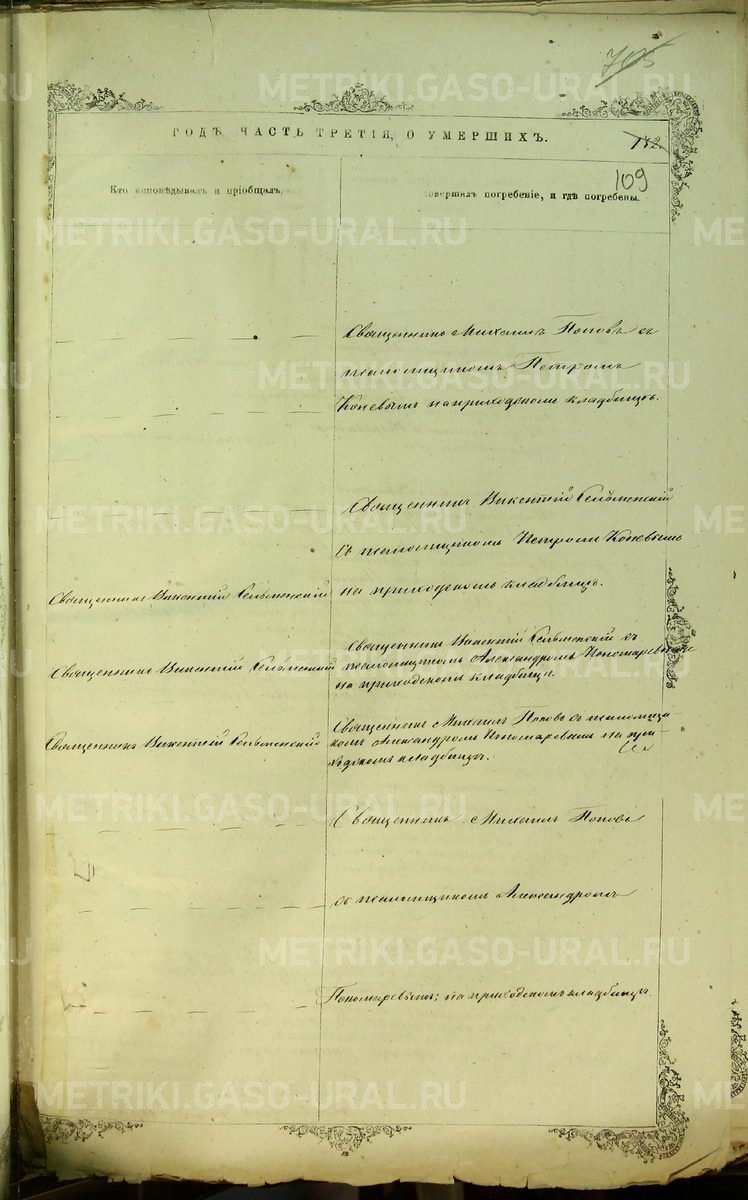 705
ГОДЪ ЧАСТЬ ТРЕТІЯ, О УМЕРШИХЪ.
132
109
Кто исповѣдывалъ и пріобщалъ.
совершалъ погребеніе, и гдѣ погребены.
Священникъ Михаилъ Поповъ съ
псаломщикомъ Петромъ
Коневымъ на приходскомъ кладбищѣ.
Священникъ Викентій Сельменскій
съ псаломщикомъ Петромъ Коневымъ
Священникъ Викентій Сельменскій
на приходскомъ кладбищѣ.
Священникъ Викентій Сельменскій
Священникъ Викентій Сельменскій съ
псаломщикомъ Александромъ Пономаревымъ
на приходскомъ кладбищѣ.
Священникъ Викентій Сельменскій
Священникъ Михаилъ Поповъ съ псаломщи-
комъ Александромъ Пономаревымъ на при-
ходскомъ кладбищѣ.
Священникъ Михаилъ Поповъ
съ псаломщикомъ Александромъ
Пономаревымъ; на приходскомъ кладбищѣ.
METRIKI.GASO-URAL.RU